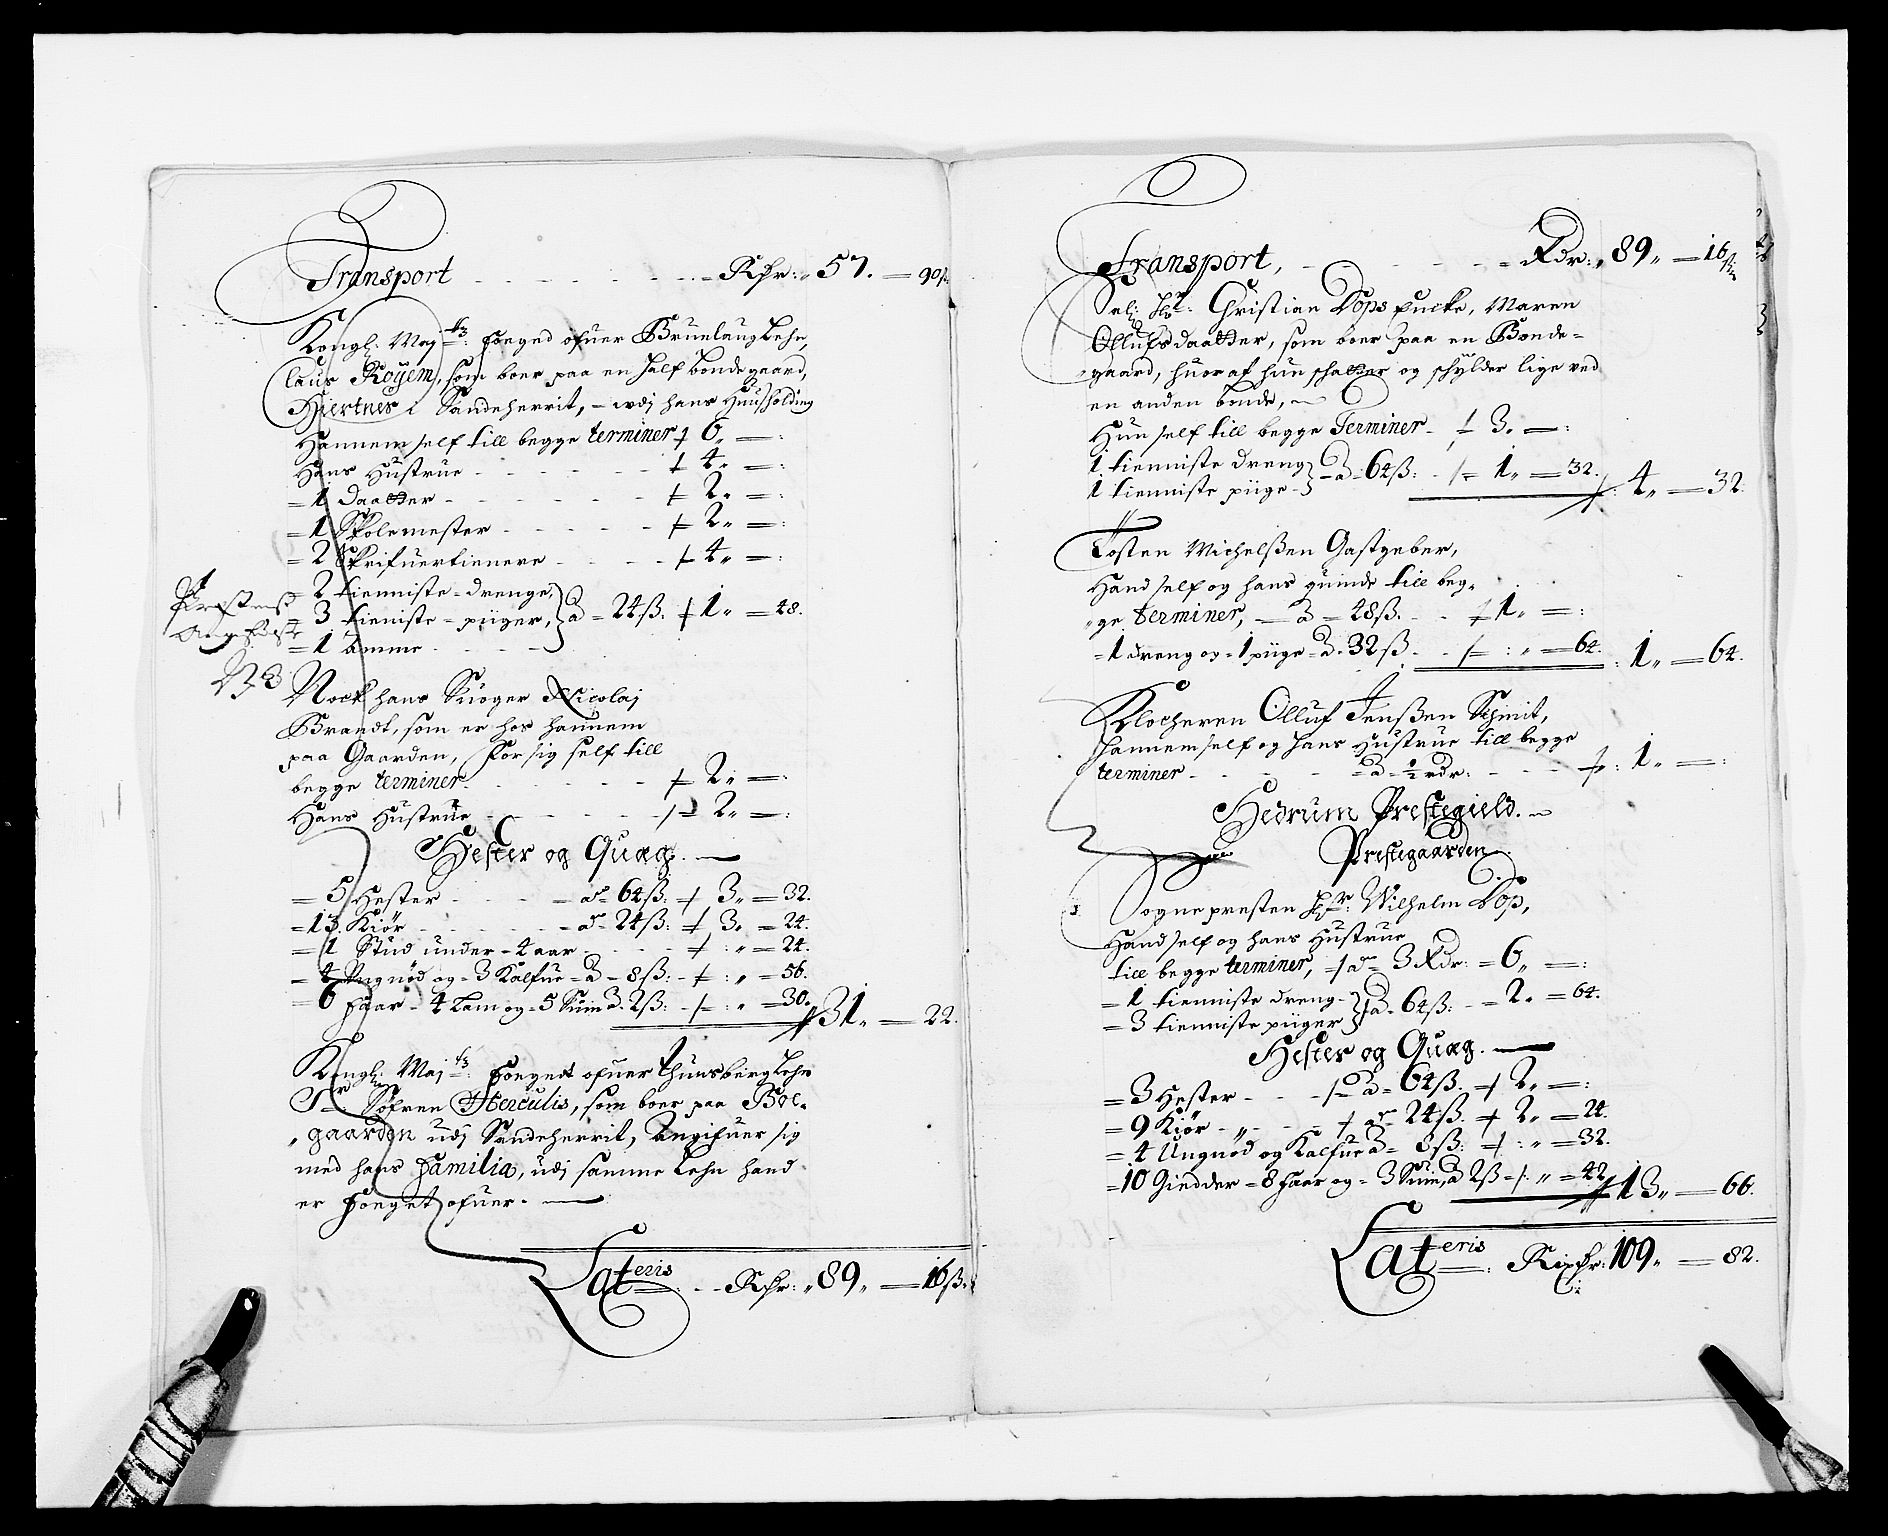 Transport - - - - - - - Rdr: 57. = 90ß
Kongl: Maj:tz: foeged ofuer Brunlaug Lehn,
Claus Röyem, som boer paa en half bonde gaard,
Hiertnes i Sandeherrit, - udj hans Huusholding
Hannem self till begge terminer ⨍ 6„ = :
Hans Hustrue - - - - ⨍ 4„ = :
= 1 daatter - - - - ⨍ 2„ = :
= 1 Skolemester - - - - ⨍ 2„ = :
= 2 Skrifuertienere - - - ⨍ 4„ = :
= 2 tienniste-drenge,
3 tieniste-piiger, } a = 24ß: ⨍ 1„ = 48.
= 1 amme - - - -
NB
Nock hans Suoger Nicolaj
Brandt, som er hos hannem
paa Gaarden, for sig self till
begge terminer. - - - - ⨍ 2„ = :
Hans Hustrue - - - - ⨍ 2„ = :
Hester og Quæg. —
= 5 Hester - - - - a = 64ß: ⨍ 3„ = 32.
= 13. Kiör - - - - a = 24ß: ⨍ 3„ = 24.
= 1 Stud under = 4 aar - - - ⨍ : „ = 24.
= 4 Ungnöd og = 3 Kalfue = a = 8ß: - ⨍ : „ = 56.
= 6 faar = 4 Lam og = 5 Suin a 2ß: - ⨍ : „ = 30. ⨍ 31„ = 22.
Kongl: Maj:tz: foeget ofuer Thunsberg Lehn
Sr Söfren Herculis, som boer paa Boe-
„gaarden udj Sandeherrit, Angifuer sig
med hans familia, udj samme Lehn hand
er foeget ofuer. —
Lateris: - - Rdr: „ 89„ = 16ß:
Transport, - - - - - Rdr: „ 89„ = 16ß
Sal: Hr: Christian Dops Encke, Maren
Ollufsdaatter, som boer paa en Bonde-
„gaard, huoraf hun schatter og schylder lige ved
en anden bonde,
Hun self till begge Terminer - ⨍ 3„ = :
1 tienniste dreng
1 tienniste piige } a = 64ß: - ⨍ 1„ = 32. ⨍: 4„ = 32.
Tosten Michelßen Gastgeber,
Hand self og hans quinde till beg-
„ge terminer, — a = 48ß. - - ⨍ 1„ = :
= 1 dreng og = 1 piige = a = 32ß - - ⨍ : „ = 64. : 1„ = 64.
Klocheren Olluf Jenßen Schmit,
Hannem self og hans Hustrue till begge
terminer - - - = a = ½ rdr: - - - ⨍: 1„ = :
Hedrum Prestegield.
Prestegaarden
Sognepresten Hr: Wilhelm Dop,
Hand self og hans Hustrue
till begge terminer, = a = 3 Rdr: = 6„ = :
= 1 tienniste dreng
= 3 tienniste piiger } a = 64ß: - = 2„ = 64.
Hester og Quæg. —
= 3 Hester - - - ⨍ a = 64ß. ⨍ 2„ = :
= 9 Kiör - „ - - ⨍ a = 24ß. ⨍ 2„ = 24.
= 4 Ungnöd og Kalfue a = 8ß: ⨍ : „ = 32.
= 10 Giedder = 8 faar og = 3 Suin, a 2ß = ⨍: „ = 42 ⨍ 13„ = 66.
Lateris: Rixdr: 109„ = 82.